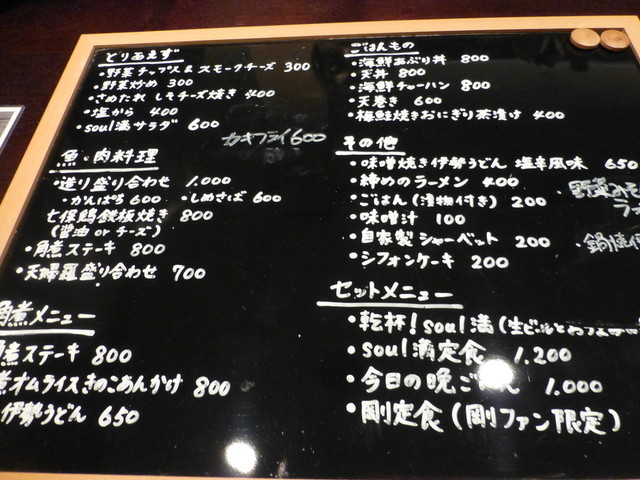 とりあえず
・野菜チップス&スモークチーズ 300
・野菜炒め 300
・さめたれ しそチーズ焼き 400
・塩から 400
・soul満サラダ 600
カキフライ600
魚・肉料理
・造り盛り合わせ 1,000
・かんぱち 600 ・しめさば 600
七保鶏鉄板焼き 800
(醤油 or チーズ)
・角煮ステーキ 800
・天婦羅盛り合わせ 700
角煮メニュー
煮ステーキ 800
煮オムライスきのこあんかけ 800
伊勢うどん 650
ごはんもの
・海鮮あぶり丼 800
・天丼 800
・海鮮チャーハン 800
・天巻き 600
・梅軽焼きおにぎり茶漬け 400
その他
・味噌焼き伊勢うどん 塩辛風味 650
・締めのラーメン 400
・ごはん(漬物付き) 200
・味噌汁 100
・自家製シャーベット 200
・シフォンケーキ 200
野菜
ラ
・鍋焼
セットメニュー
・乾杯!soul満(生ビールと
・soul満定食 1,200
・今日の晩ごはん 1,000
・剛定食(剛ファン限定)